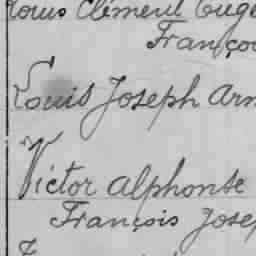 Louis Clément Euge
Françoi
Louis Joseph Arm
Victor Alphonse
François Josep